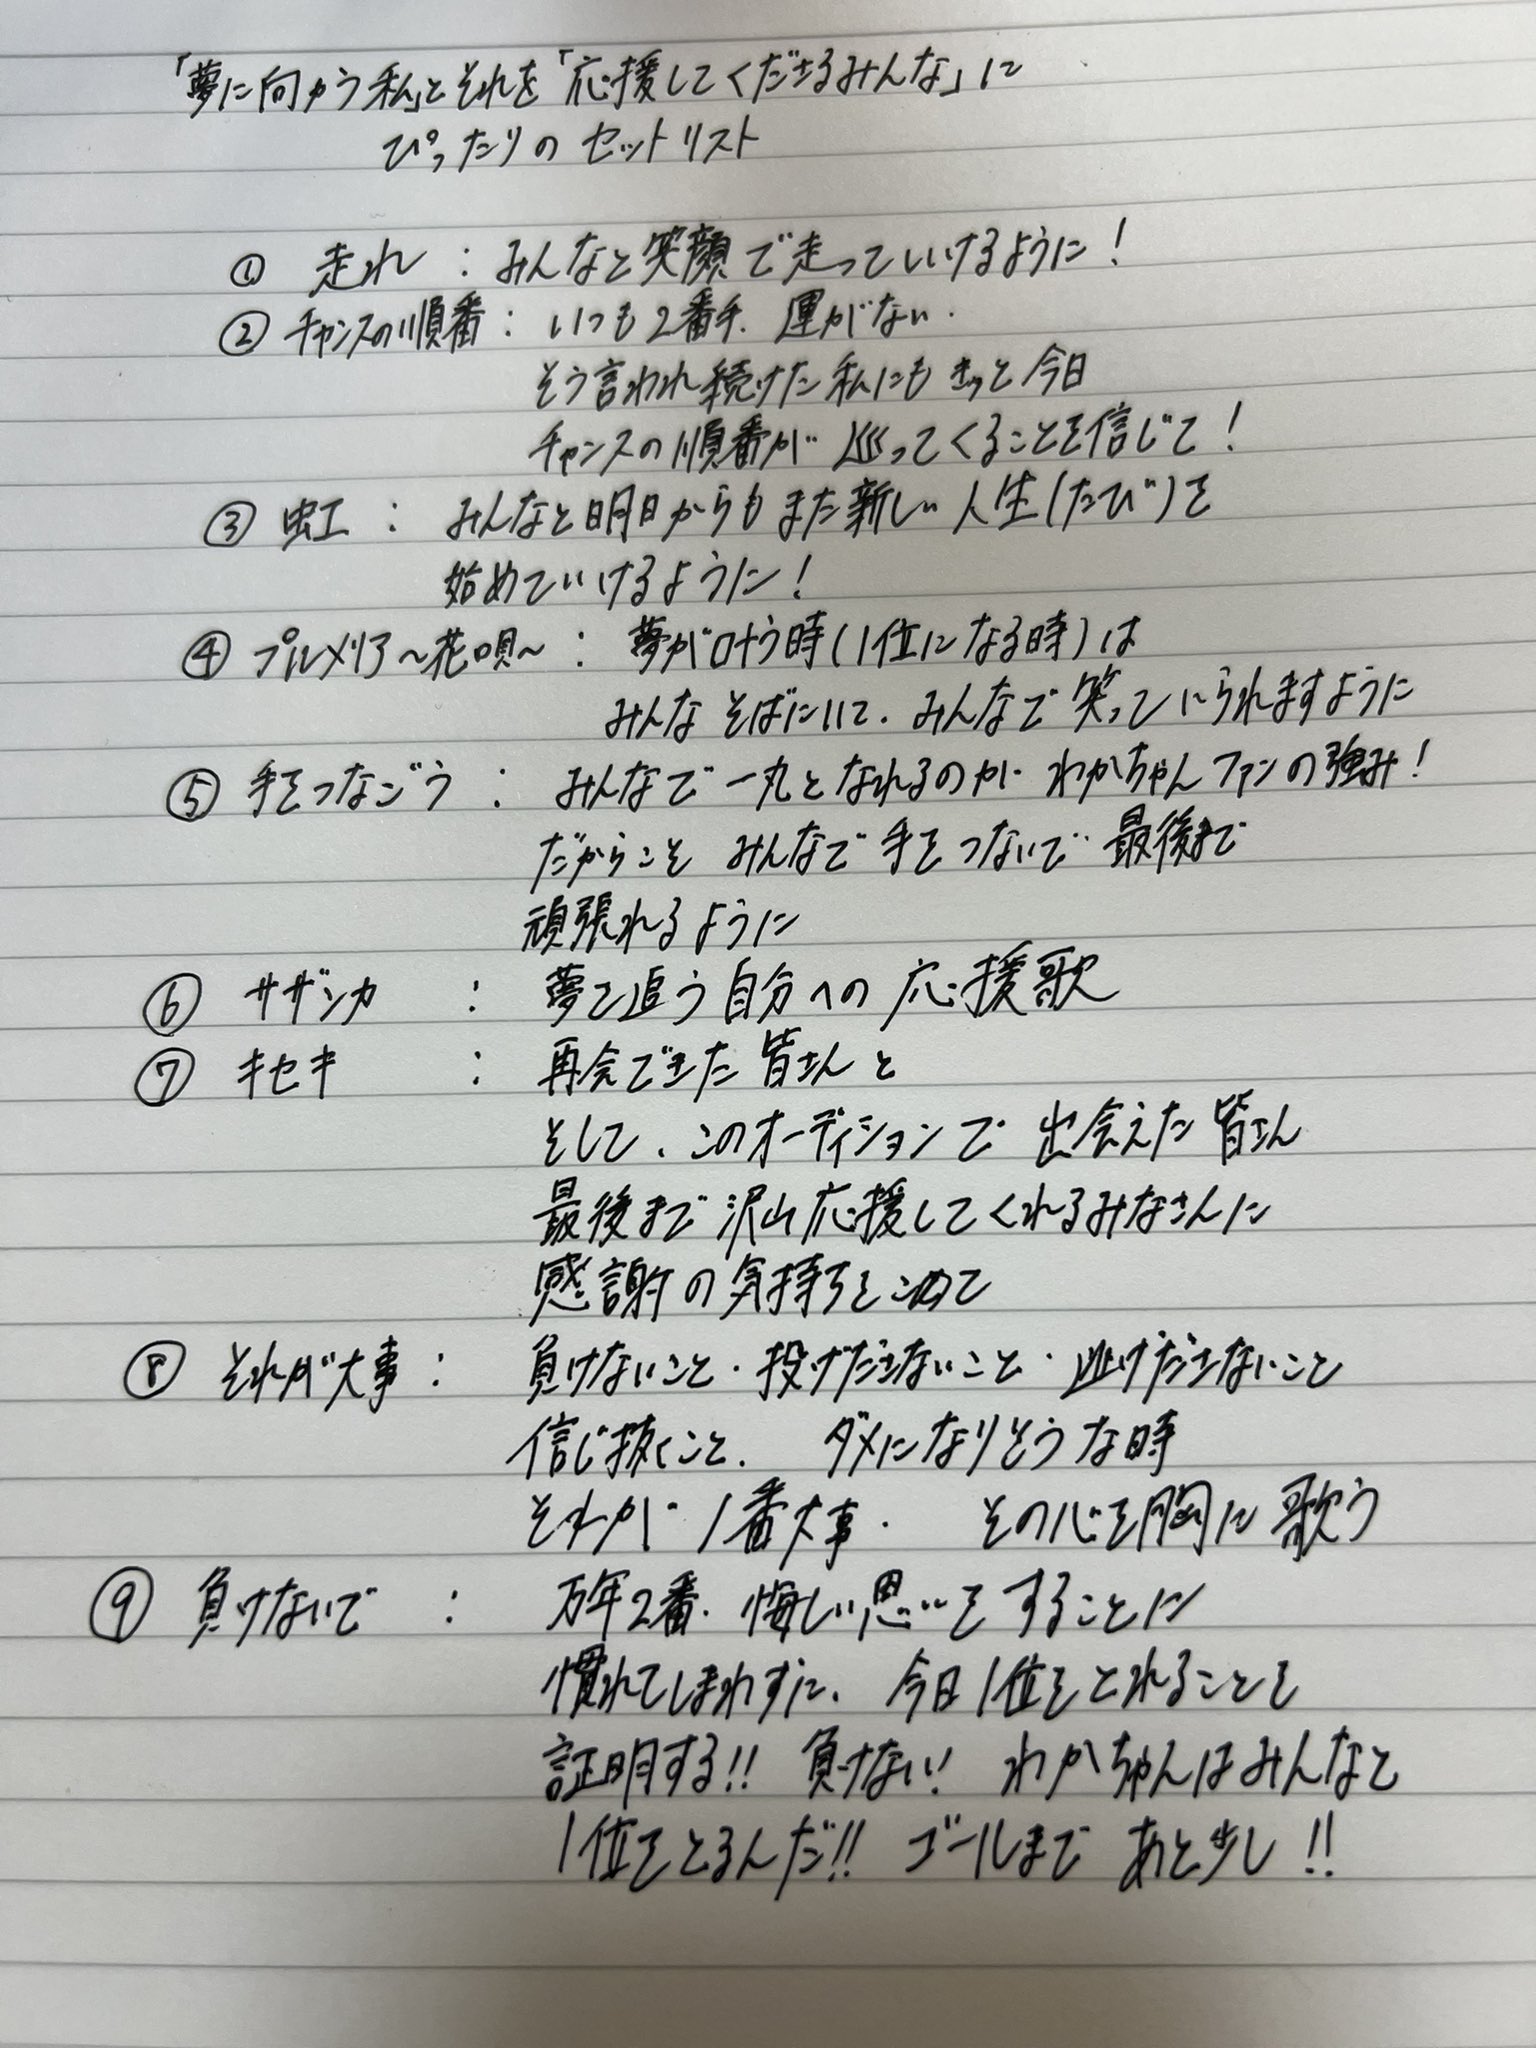 「夢に向かう私」とそれを「応援してくださるみんな」に
ぴったりの セットリスト
① 走れ : みんなと笑顔で走っていけるように!
② チャンスの順番 : いつも2番手. 運がない.
そう言われ続けた私にもきっと今日
チャンスの順番が 巡ってくることを信じて!
③ 虹 : みんなと明日からもまた新しい人生(たび)を
始めていけるように!
④ プルメリア〜花唄〜 : 夢が叶う時(1位になる時)は
みんなそばにいて. みんなで笑っていられますように
⑤ 手をつなごう : みんなで一丸となれるのが わかちゃんファンの強み!
だからこそ みんなで手をつないで 最後まで
頑張れるように
⑥ サザンカ : 夢を追う自分への応援歌
⑦ キセキ : 再会できた皆さんと
そして、このオーディションで 出会えた皆さん
最後まで沢山応援してくれるみなさんに
感謝の気持ちをこめて
⑧ それが大事 : 負けないこと・投げださないこと・逃げださないこと
信じ抜くこと. ダメになりそうな時
それが1番大事. その心を胸に歌う
⑨ 負けないで : 万年2番. 悔しい思いをすることに
慣れてしまわずに、今日1位をとれることを
証明する!! 負けない! わかちゃんはみんなと
1位をとるんだ!! ゴールまで あと少し!!